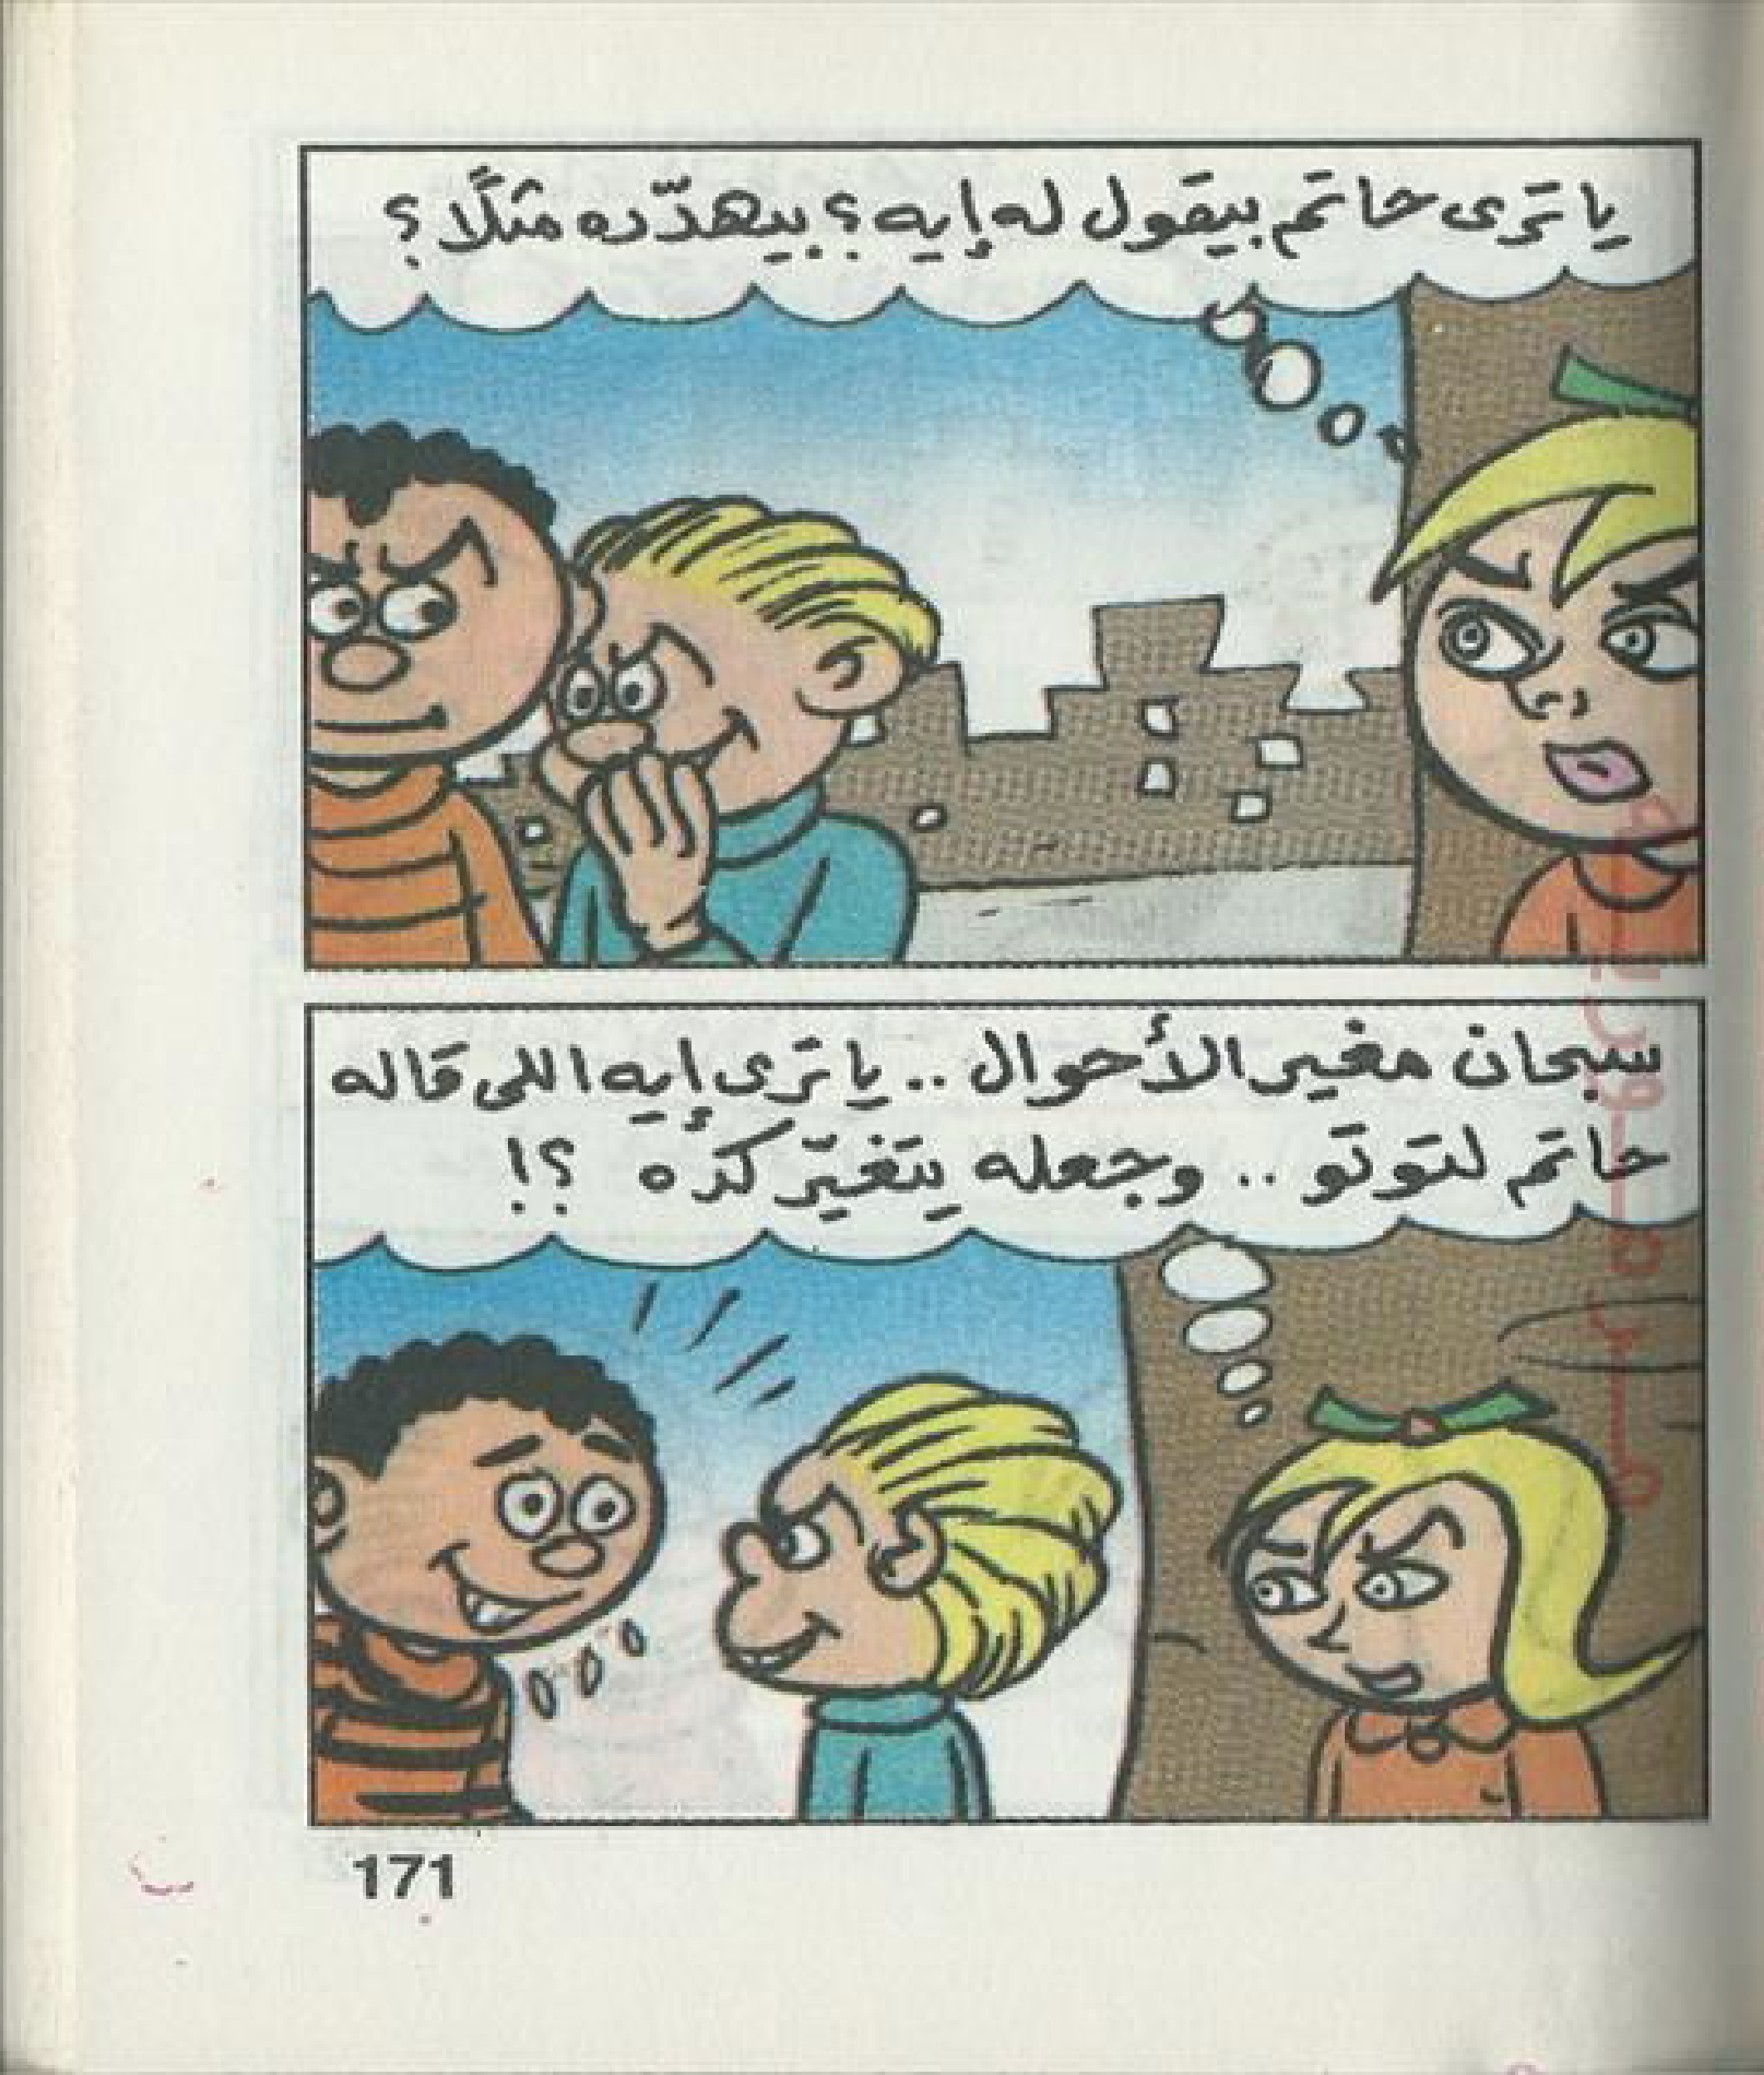 يا ترى حاتم بيقول له إيه؟ بيهدّده مثلًا؟
سبحان مغير الأحوال .. يا ترى إيه اللى قاله
حاتم لتوتو .. وجعله يتغيّر كده ؟!
171